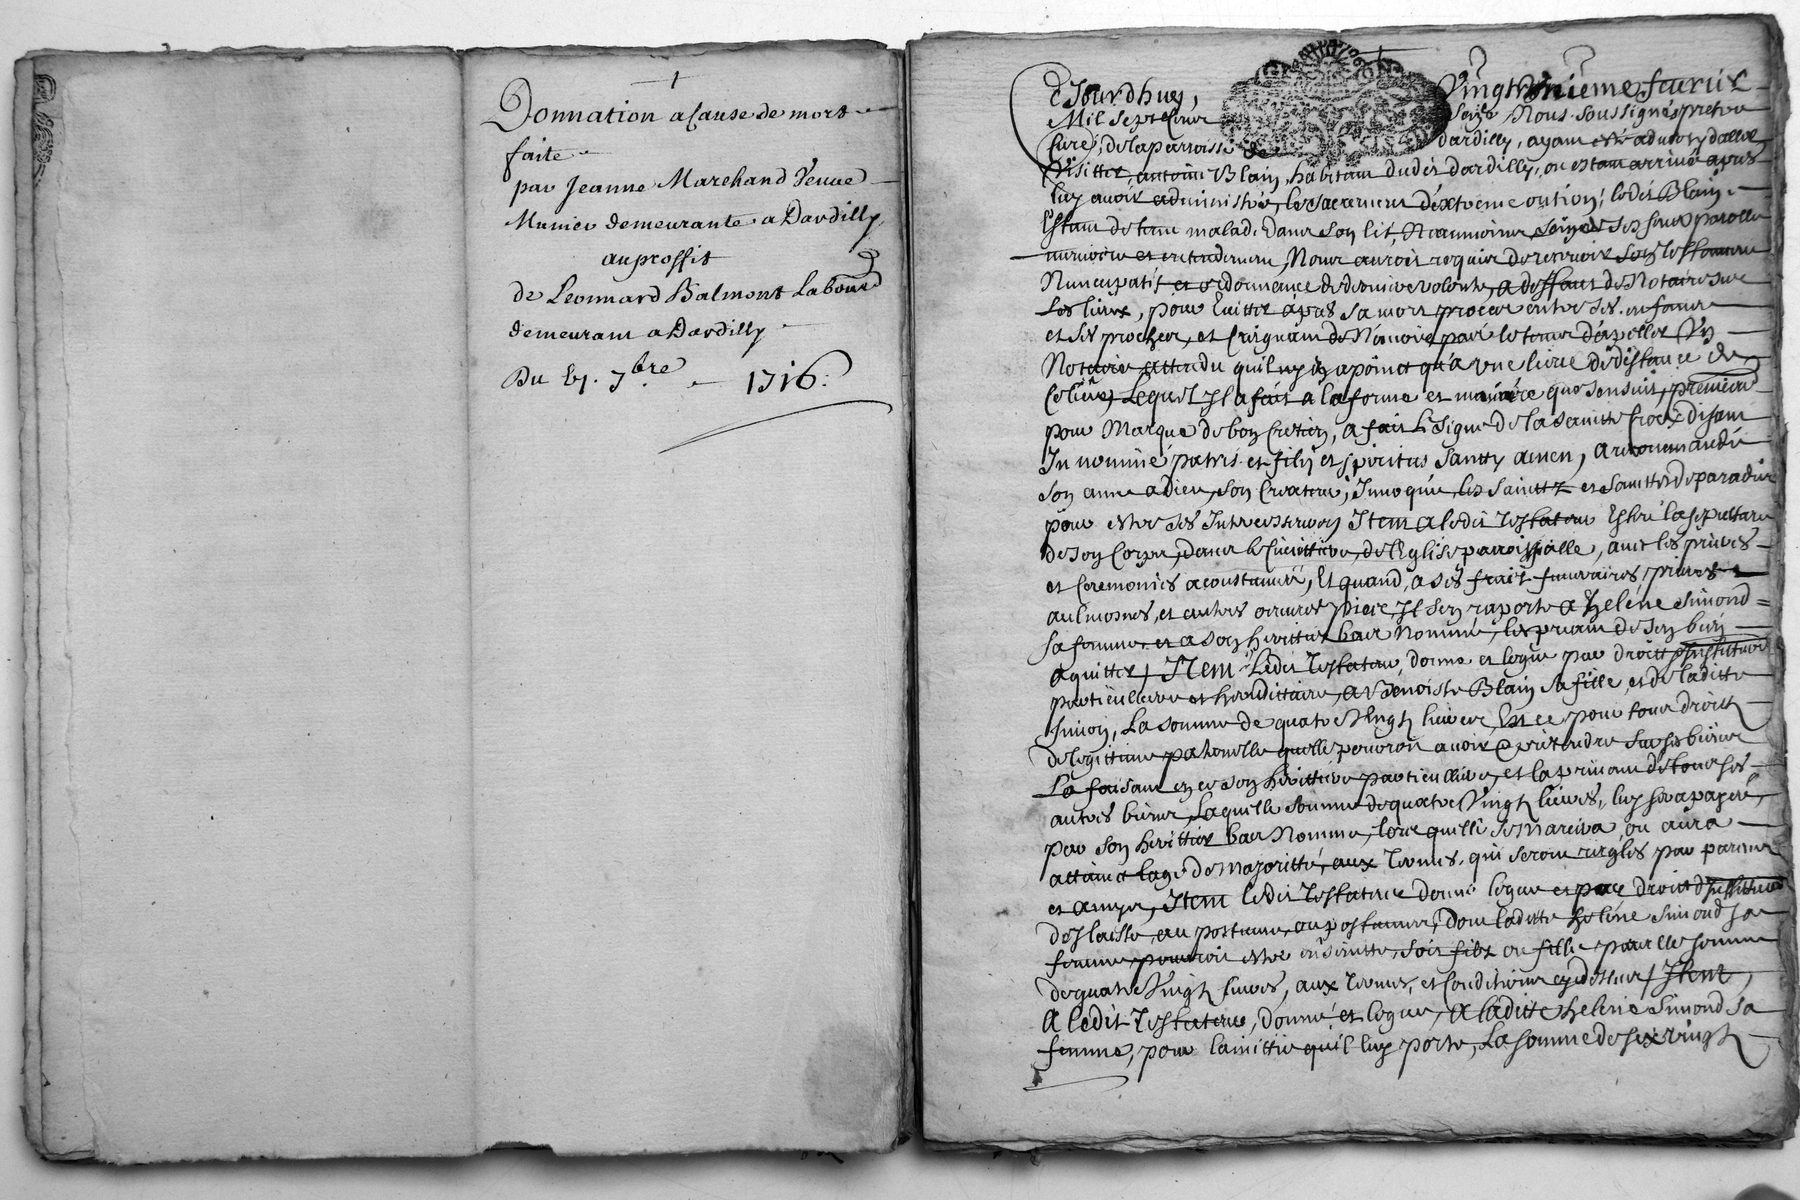 Donnation a Cause de mort
faite
par Jeanne Marchand Veuve
Munier demeurante a Dardilly
au proffit
de Leonnard Balmont Labour
demeurant a Dardilly
Du 7bre 1716
Ce Jourdhuy, Vingt fevrier
Mil Sept Cent Seize Nous soussigné pretre
Curé, de la parroisse de dardilly, ayant esté
Visitter, antoine Blain, habitant dudit dardilly, ou estant arrivé apres
luy avoir administré, le sacrement d'extreme ontion, ledit Blain
Estant detenu malade dans son lit, Neanmoins, sein de ses sens parolle
memoire et entendement, Nous auroit requis de recevoir son testament
Nuncupatif et ordonnance de derniere volonté, a deffaut de Notaire sur
Les lieux, pour Euitter apres sa mort proces entre ses enfants
et ses proches, et Craignant de pas le temps d'apeller Un
Notaire attendu quil ny en a point qu'a une lieue de distance de
Ce lieu, Lequel Il a fait a la forme et maniere que sensuit, premierement
pour Marque de bon Cretien, a fait le signe de la Sainte Croix disant
In nomine patris et filij et spiritus Santty amen, a recommandé
son ame a Dieu, son Createur, Invoqué, les Saintz et Saintes de paradis
pour estre ses Intercesseurs Item a ledit Testateur Eslu la sepulture
de son Corps, dans le Cimittiere, de l'Eglise parroissialle, avec les prieres
et Ceremonies acoustumée, Et quand, a ses frais funeraires, prieres
aulmosnes, et autres oeuvres pies, Il sen raporte a helene Simond
sa femme et a son heritier bas Nommé, les priant de sen bien
aquitter, Item Ledit Testateur, donne et legue par droit d'institution
particulliere et hereditaire, a Benoiste Blain sa fille, et de laditte
Simon, La somme de quatre Vingt livres, Et ce pour tous droits
de legitime paternelle quelle pouroit avoir et pretendre sur ses biens
La faisant en ce son heritiere particulliere, et la privant de tous ses
autres biens, Laquelle somme de quatre Vingt livres, luy sera payée
par son heritier bas Nommé, lors quelle se mariera, ou aura
attaint lage de majoritté, aux termes, qui seront reglés par parens
et amys, Item ledit Testateur donne legue et par droit d'institution
delaisse, au postume, ou postumes, dont laditte helene Simond sa
femme pourroit estre ensceinte, soit filz ou fille pareille somme
de quatre Vingt livres, aux termes, et Conditions cy dessus, Item,
A ledit Testateur, donné et legué, a laditte helene Simond sa
femme, pour lamittié quil luy porte, La somme de six vingt